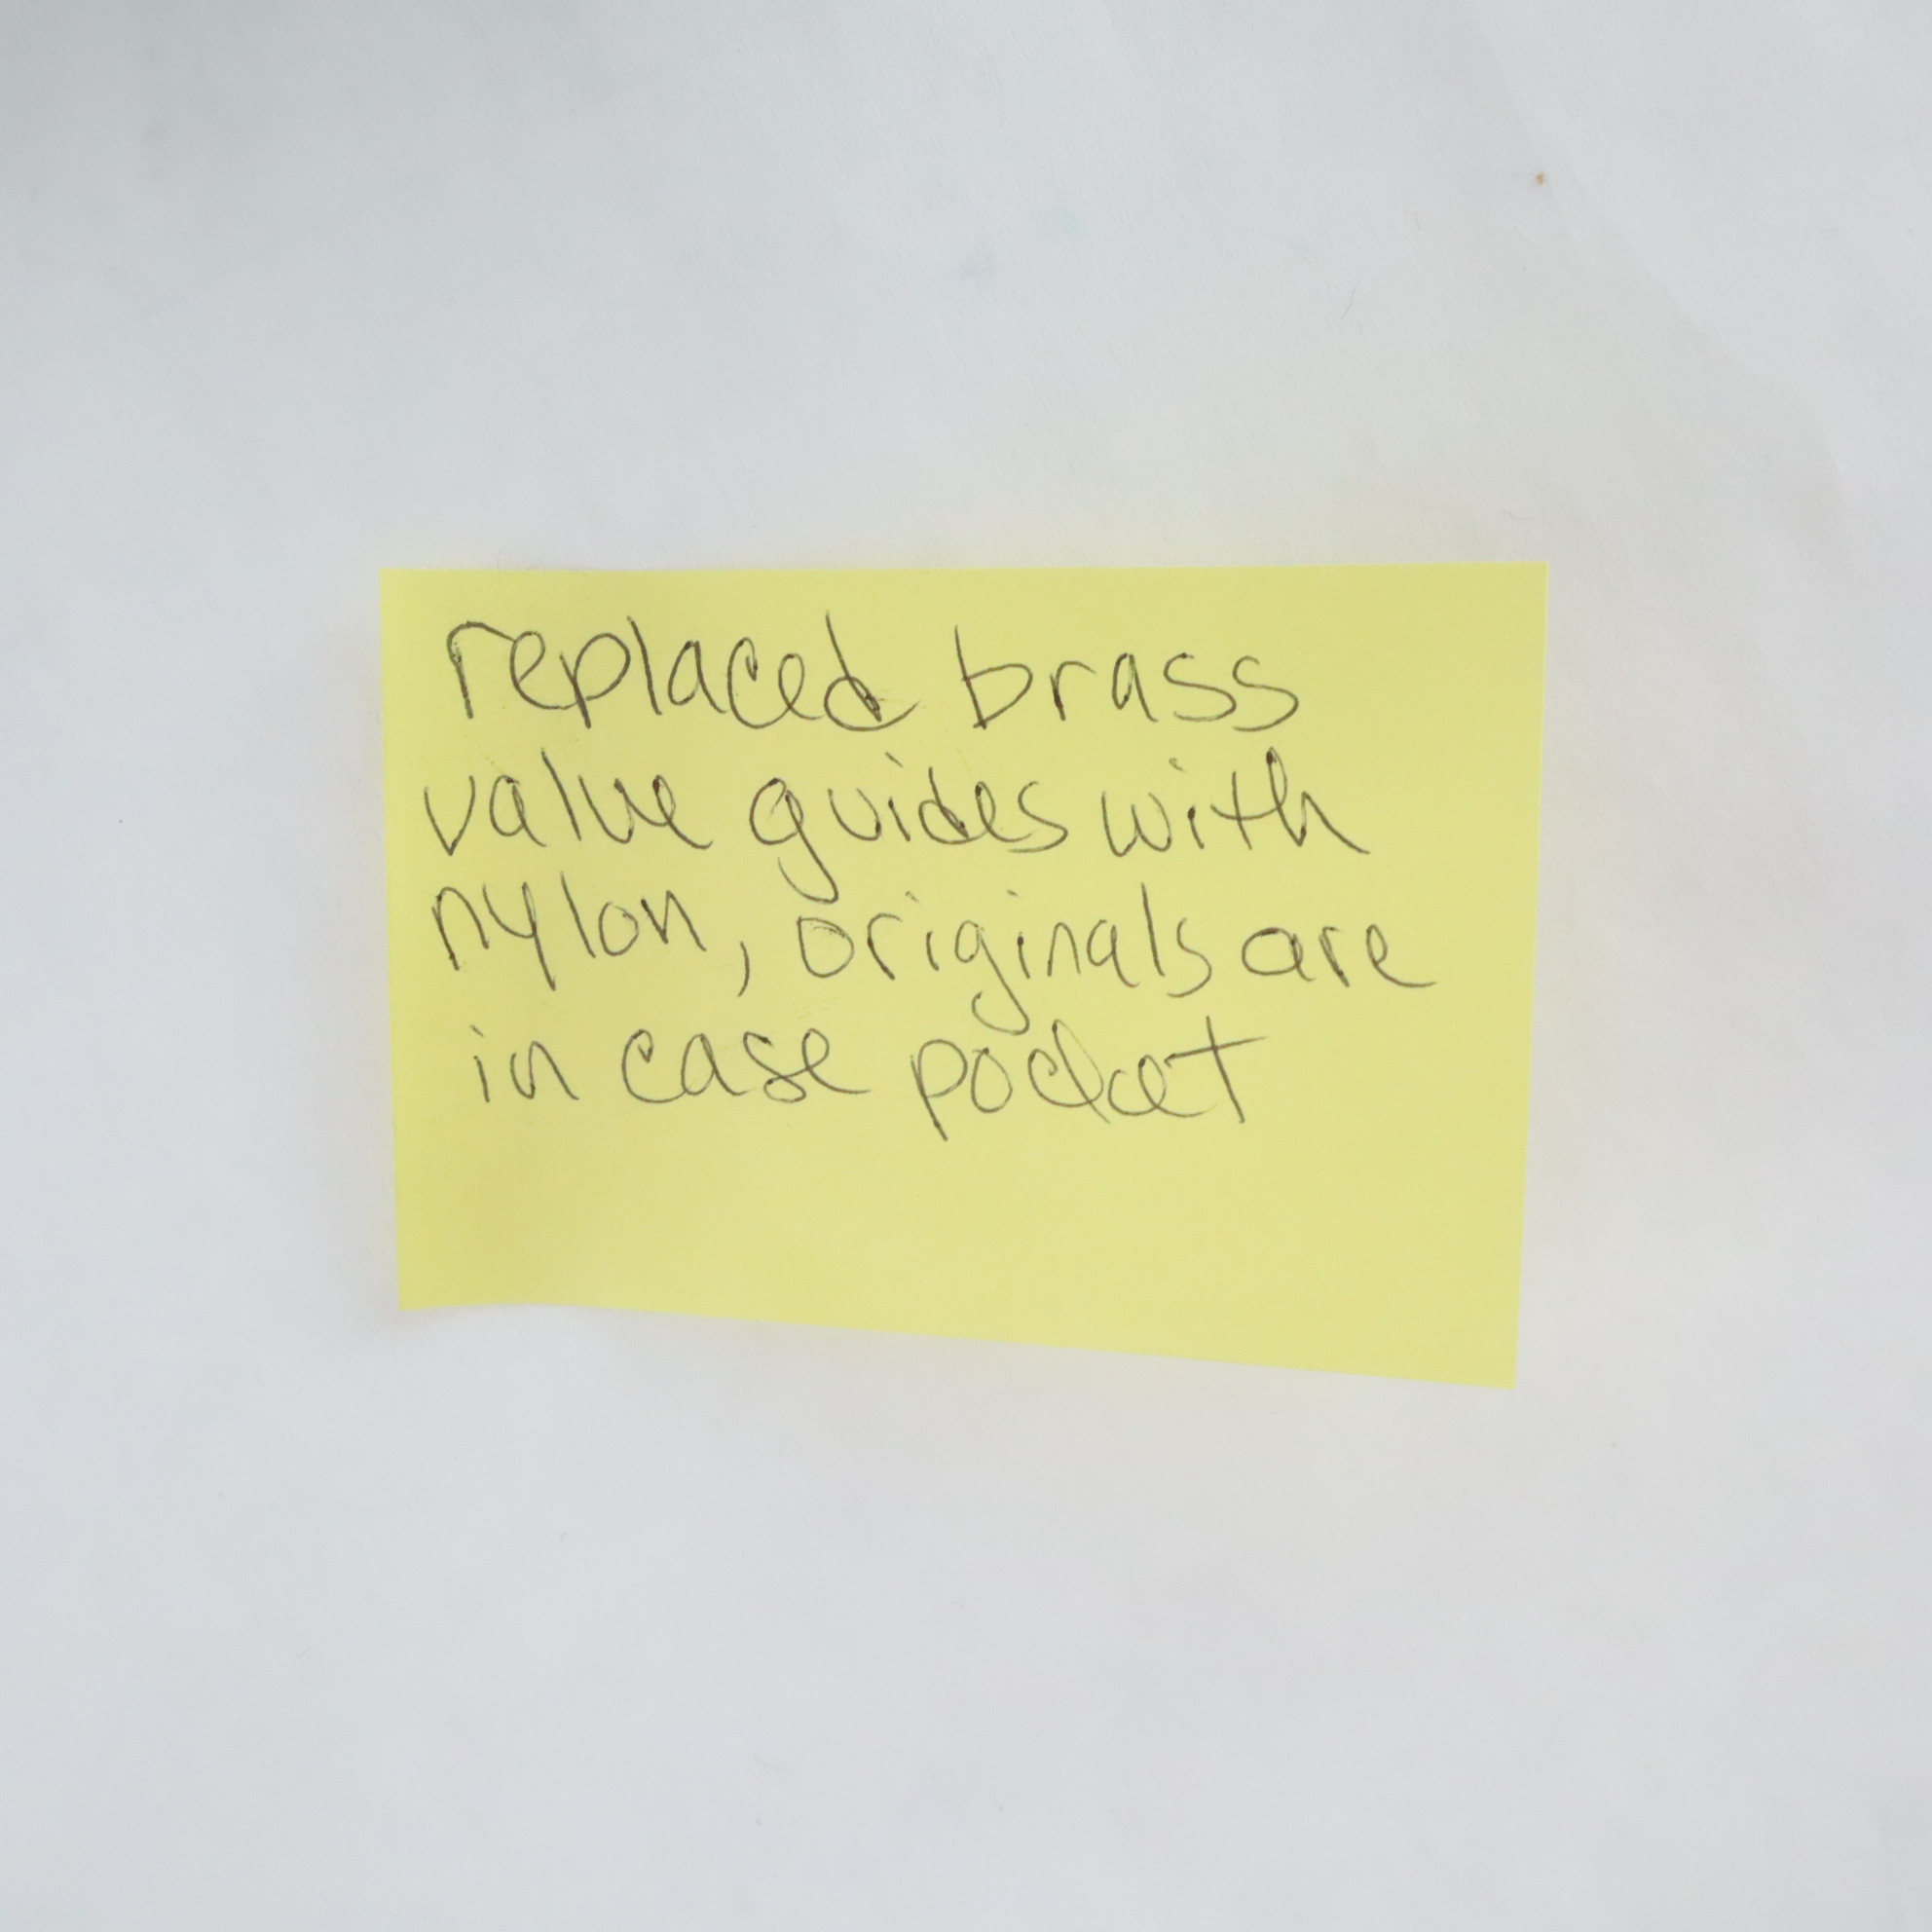 replaced brass
valve guides with
nylon, originals are
in case pocket